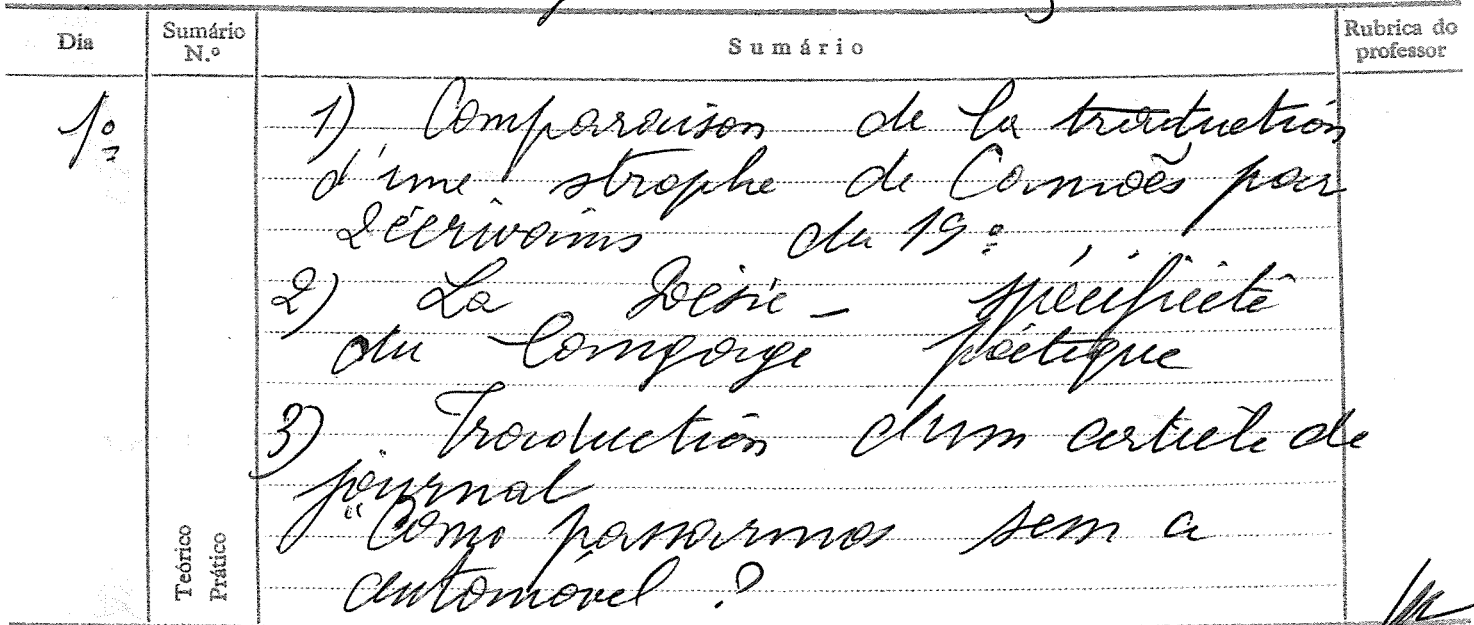 Dia Sumário N.º Sumário Rubrica do professor
1º
1) Comparaison de la traduction
d'une strophe de Camões par
2 écrivains du 19º
2) La Poésie - spécificité
du langage poétique
3) Traduction d'un article de
journal
"Como passarmos sem o
automóvel ?
Teórico
Prático